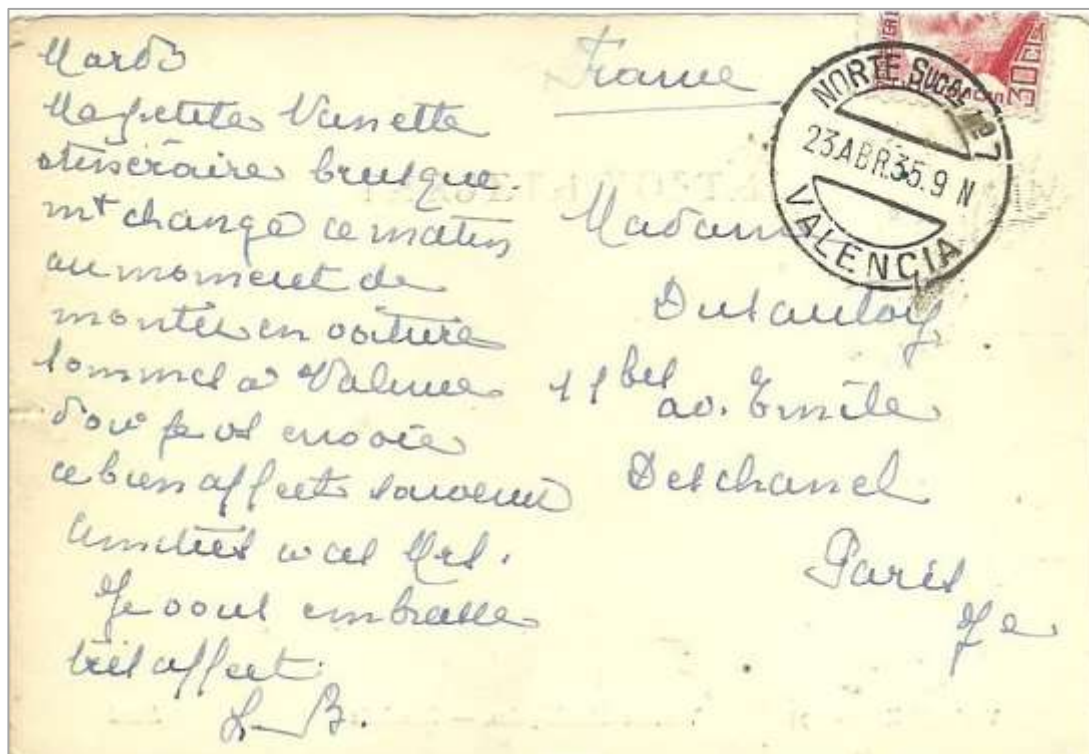 Mardi
Ma petite Vanette
Itinéraire brusque-
mt changé ce matin
au moment de
monter en voiture
sommes à Valence
d'où je vs envoie
ce bien affect souvenir
amitiés à ces Mrs.
Je vous embrasse
très affect.
L-B.
France
NORTE SUCRE Nº 7
23 ABR.35.9 N
VALENCIA
30 CTS
Madame
Dusautoy
11 bis
av. Emile
Deschanel
Paris
7e